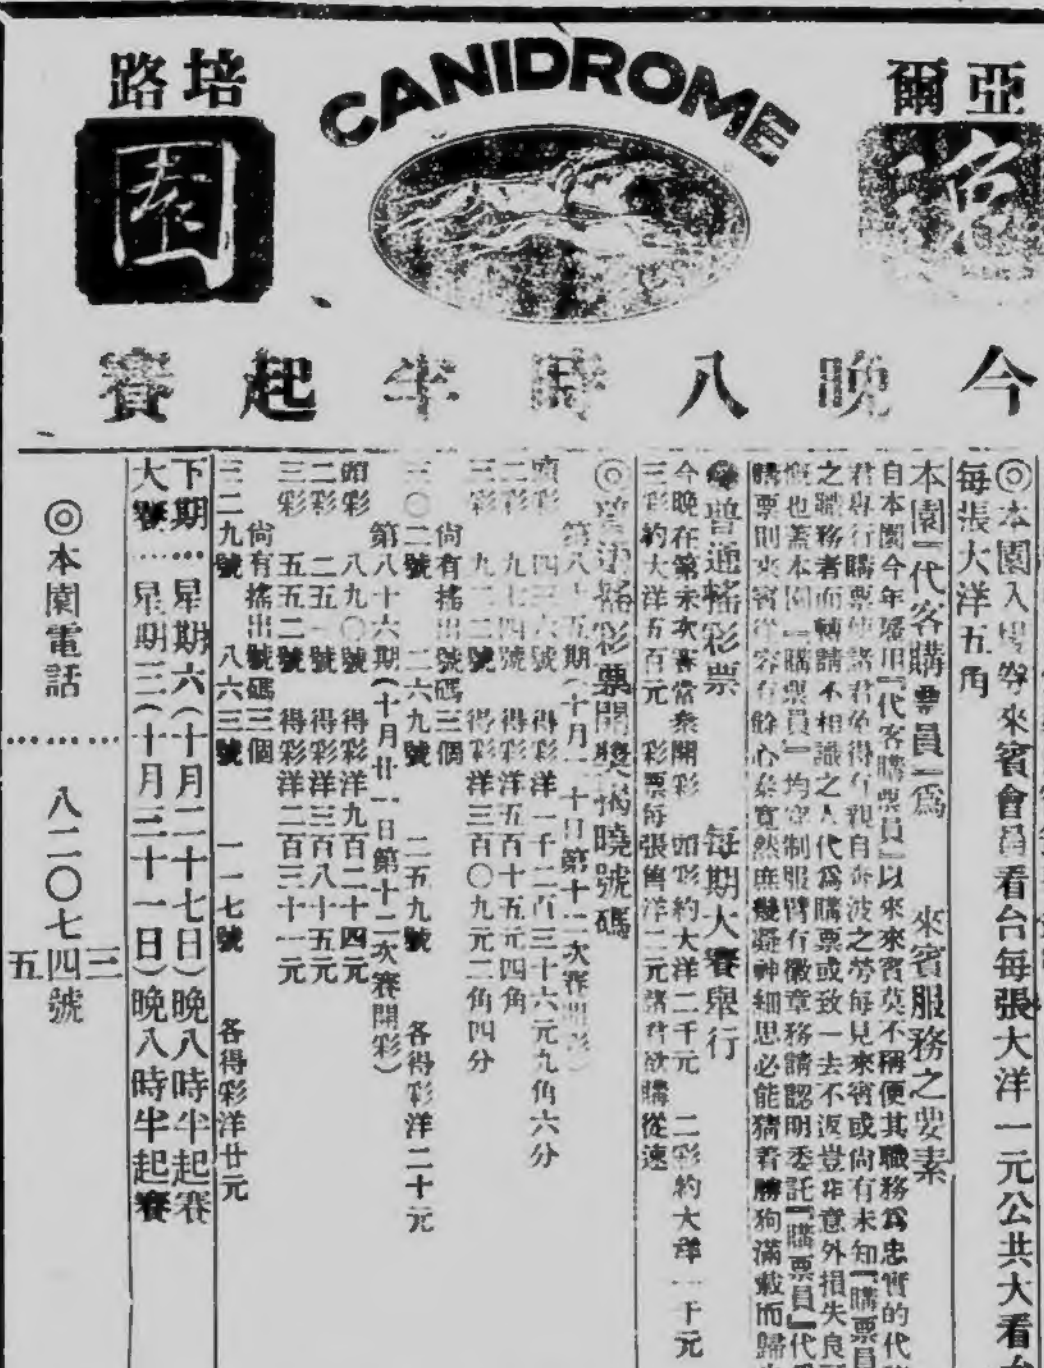 亞爾
培路
CANIDROME
逸園
今晚八時半起賽
◎本園入場券來賓會員看台每張大洋一元公共大看
每張大洋五角
本園『代客購票員』爲 來賓服務之要素
自本園今年採用『代客購票員』以來來賓莫不稱便其職務爲忠實的代
君專行購票使諸君免得有親自奔波之勞每見來賓或尙有未知『購票員
之職務者而轉請不相識之人代爲購票或致一去不返豈非意外損失良
慨也蓋本園『購票員』均穿制服臂有徽章務請認明委託『購票員』代
購票則來賓從容有餘心泰寬然庶幾凝神細思必能猜着勝狗滿載而歸
普通搖彩票 每期大賽舉行
今晚在第末次賽當衆開彩 頭彩約大洋二千元 二彩約大洋一千元
三彩約大洋五百元 彩票每張售洋二元諸君欲購從速
◎普通搖彩票開獎揭曉號碼
第八十五期(十月二十日第十二次賽開彩)
頭彩 四三六號 得彩洋一千二百三十六元九角六分
二彩 九七四號 得彩洋五百十五元四角
三彩 九二二號 得彩洋三百〇九元二角四分
尙有搖出號碼三個
三〇二號 二六九號 二五九號 各得彩洋二十元
第八十六期(十月廿一日第十二次賽開彩)
頭彩 八九〇號 得彩洋九百二十四元
二彩 二五一號 得彩洋三百八十五元
三彩 五五二號 得彩洋二百三十一元
尙有搖出號碼三個
三二九號 八六三號 一一七號 各得彩洋廿元
下期…星期六(十月二十七日)晚八時半起賽
大賽…星期三(十月三十一日)晚八時半起賽
◎本園電話……八二〇七三四五號